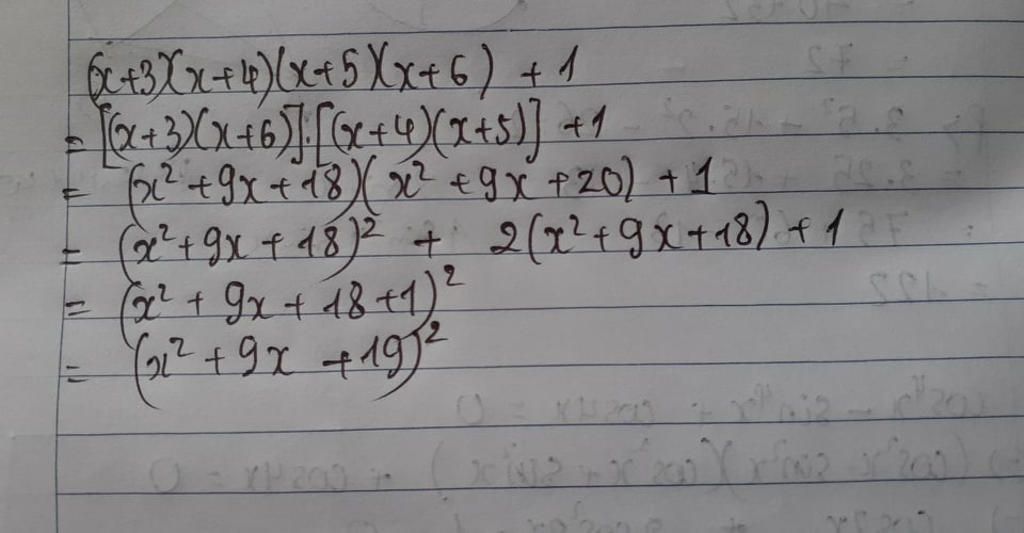 (x+3)(x+4)(x+5)(x+6) + 1
= [(x+3)(x+6)].[(x+4)(x+5)] +1
= (x² +9x+18)(x² +9x +20) + 1
= (x²+9x+18)² + 2(x²+9x+18) + 1
= (x² + 9x + 18 +1)²
= (x² + 9x +19)²